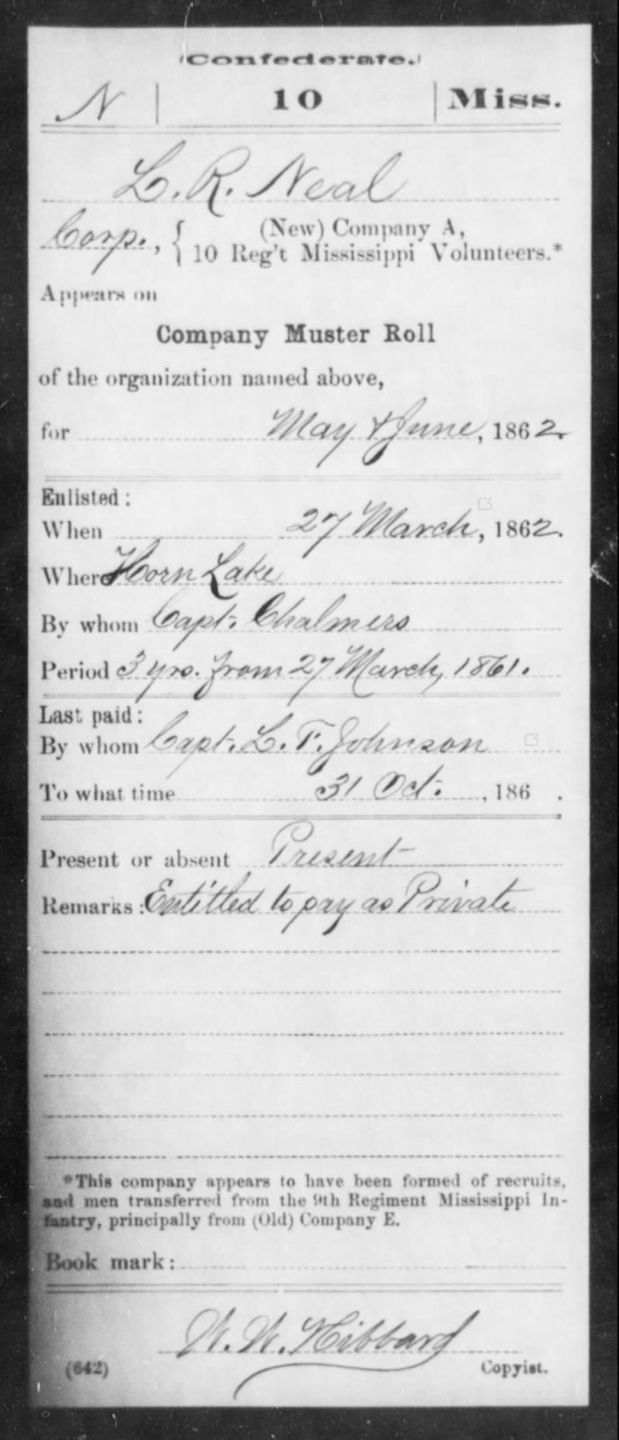 Confederate.
N | 10 | Miss.
L. R. Neal
Corp., { (New) Company A,
10 Reg't Mississippi Volunteers.*
Appears on
Company Muster Roll
of the organization named above,
for May & June, 1862.
Enlisted:
When 27 March, 1862.
Where Horn Lake
By whom Capt. Chalmers
Period 3 yrs. from 27 March, 1861.
Last paid:
By whom Capt. L. F. Johnson
To what time 31 Oct., 186 .
Present or absent Present
Remarks: Entitled to pay as Private
*This company appears to have been formed of recruits,
and men transferred from the 9th Regiment Mississippi In-
fantry, principally from (Old) Company E.
Book mark:
W. W. Hibbard
(642) Copyist.